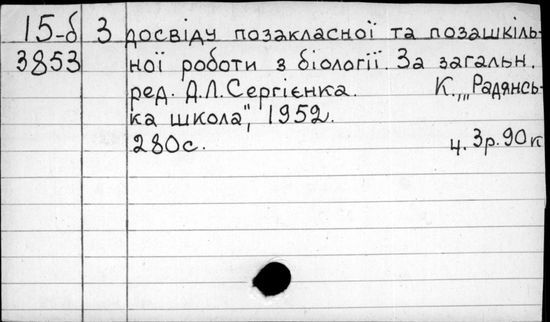 15-б З досвіду позакласної та позашкіль-
3853 ної роботи з біології. За загальн.
ред. Д.Л.Сергієнка. К., „Радянсь-
ка школа", 1952.
280с. ц. 3р.90к